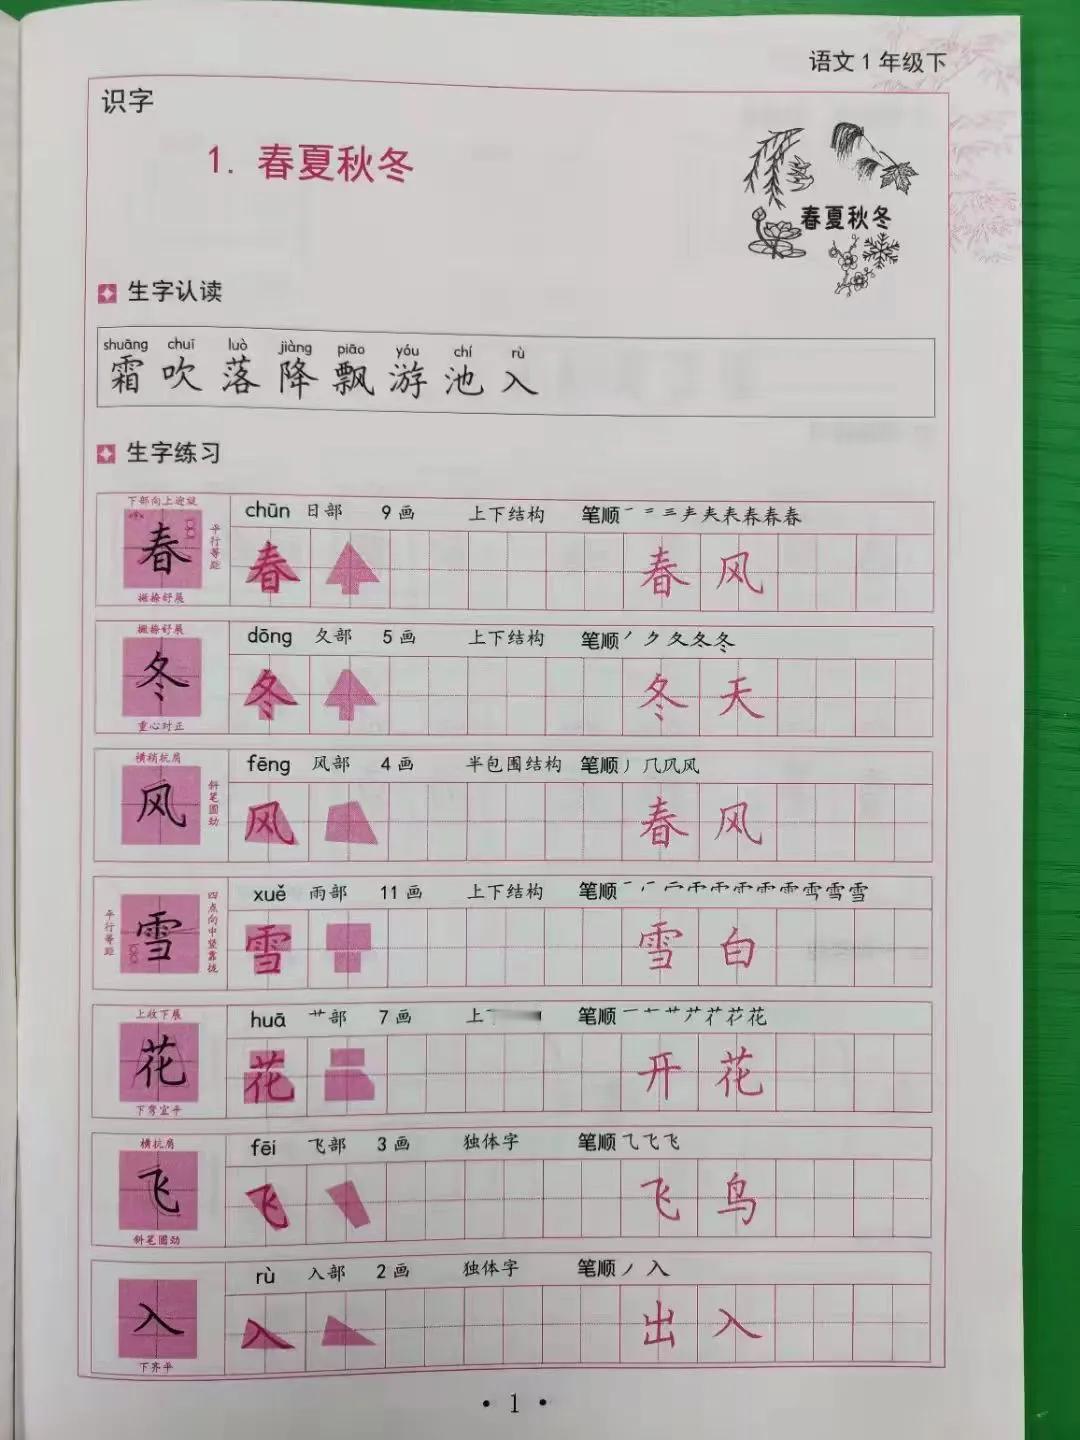 语文1年级下
识字
1. 春夏秋冬
春夏秋冬
生字认读
shuāng chuī luò jiàng piāo yóu chí rù
霜 吹 落 降 飘 游 池 入
生字练习
下部向上迎就
春
平行等距
撇捺舒展
chūn 日部 9画 上下结构 笔顺
春 春 风
撇捺舒展
冬
重心对正
dōng 夂部 5画 上下结构 笔顺
冬 冬 天
横稍抗肩
风
斜笔圆劲
fēng 风部 4画 半包围结构 笔顺
风 春 风
平行等距
雪
四点向中竖靠拢
xuě 雨部 11画 上下结构 笔顺
雪 雪 白
上收下展
花
下弯宜平
huā 艹部 7画 上 笔顺
花 开 花
横抗肩
飞
斜笔圆劲
fēi 飞部 3画 独体字 笔顺
飞 飞 鸟
入
下齐平
rù 入部 2画 独体字 笔顺
入 出 入
• 1 •